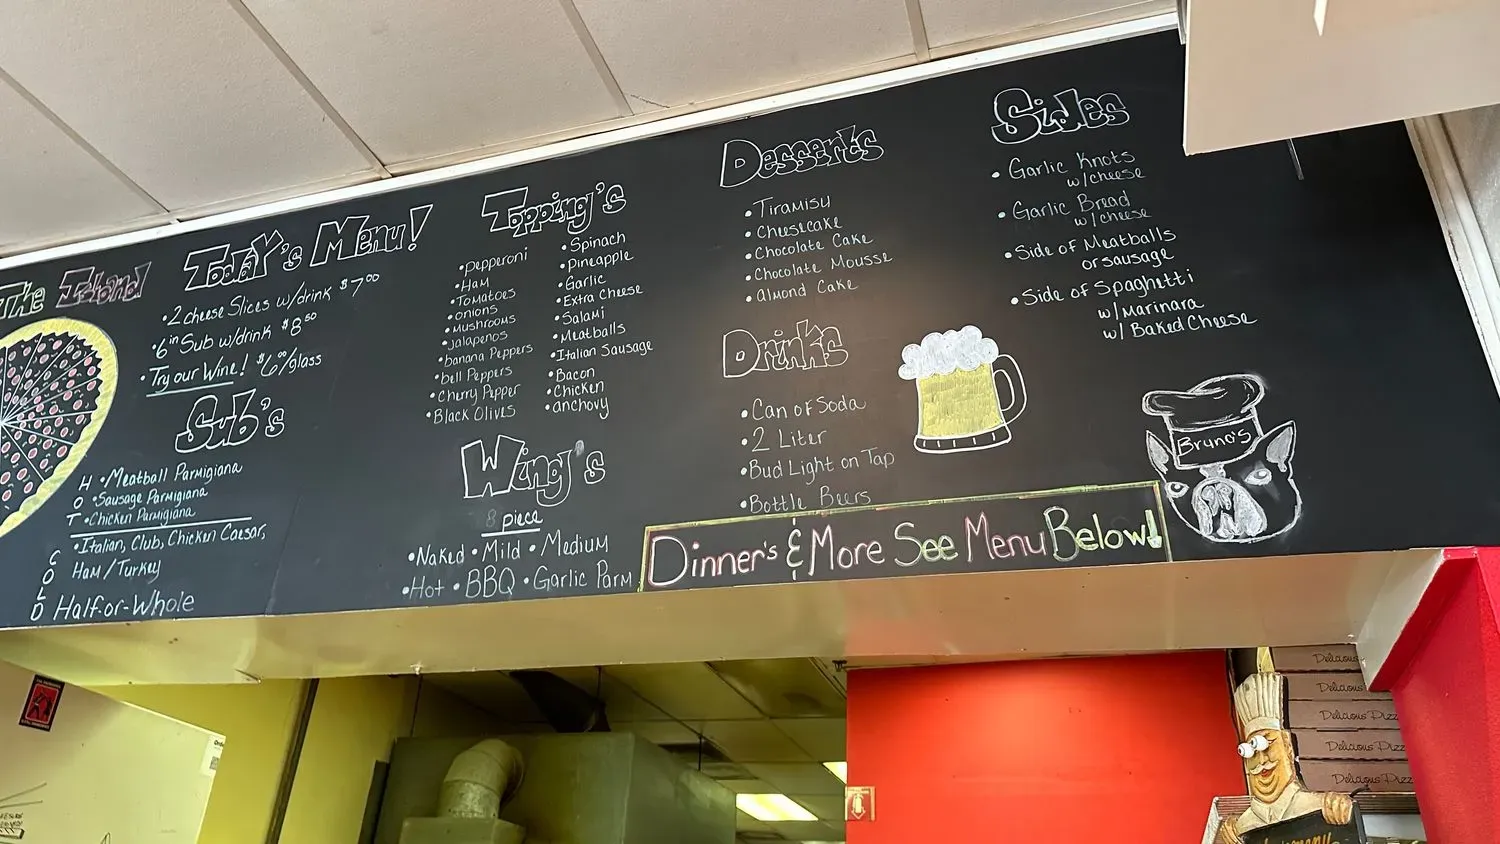 The Island
Today's Menu!
• 2 cheese Slices w/drink $7.00
• 6in Sub w/drink $8.50
• Try our Wine! $6.00/glass
Sub's
HOT
• Meatball Parmigiana
• Sausage Parmigiana
• Chicken Parmigiana
COLD
• Italian, Club, Chicken Caesar,
Ham/Turkey
Half-or-Whole
Topping's
• Pepperoni
• Ham
• Tomatoes
• onions
• mushrooms
• Jalapenos
• banana Peppers
• bell Peppers
• Cherry Pepper
• Black Olives
• Spinach
• Pineapple
• Garlic
• Extra Cheese
• Salami
• Meatballs
• Italian Sausage
• Bacon
• Chicken
• anchovy
Wing's
8 piece
• Naked • Mild • Medium
• Hot • BBQ • Garlic Parm
Desserts
• Tiramisu
• Cheesecake
• Chocolate Cake
• Chocolate Mousse
• Almond Cake
Drinks
• Can of Soda
• 2 Liter
• Bud Light on Tap
• Bottle Beers
Sides
• Garlic Knots
w/cheese
• Garlic Bread
w/cheese
• Side of Meatballs
or sausage
• Side of Spaghetti
w/Marinara
w/Baked Cheese
Bruno's
Dinner's & More See Menu Below!
Delicious
Delicious
Delicious Pizz
Delicious Pizz
Delicious Pizz